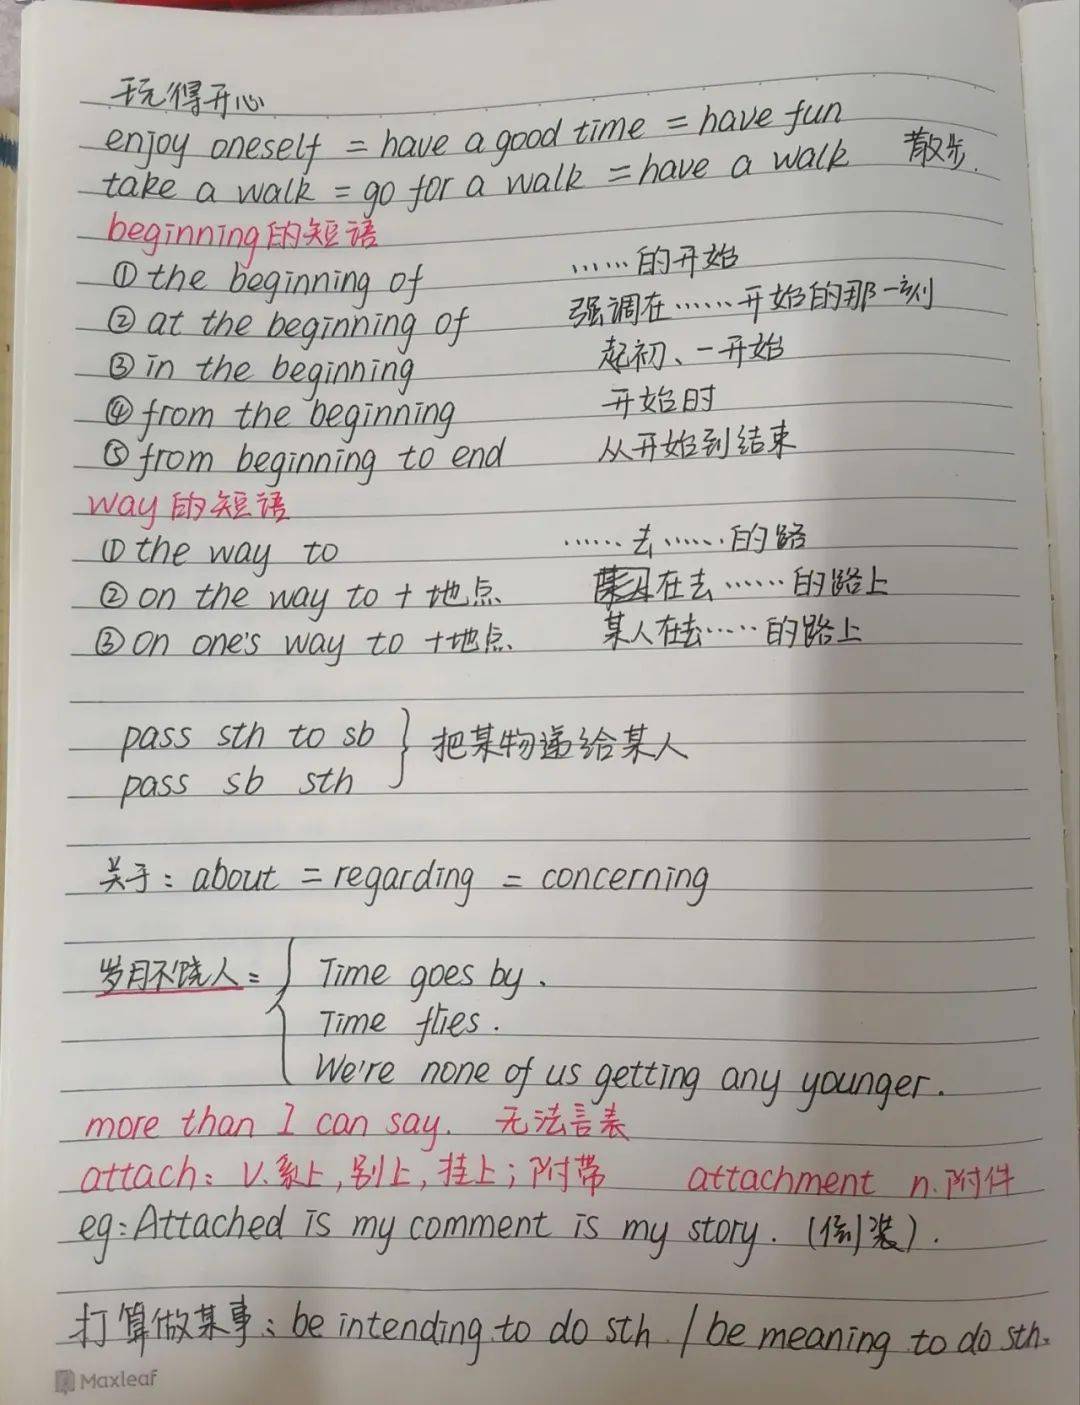 玩得开心
enjoy oneself = have a good time = have fun
take a walk = go for a walk = have a walk 散步.
beginning的短语
① the beginning of ……的开始
② at the beginning of 强调在……开始的那一刻
③ in the beginning 起初、一开始
④ from the beginning 开始时
⑤ from beginning to end 从开始到结束
way的短语
① the way to ……去……的路
② on the way to + 地点 在去……的路上
③ on one's way to +地点. 某人在去……的路上
pass sth to sb } 把某物递给某人
pass sb sth
关于: about = regarding = concerning
岁月不饶人= { Time goes by.
Time flies.
We're none of us getting any younger.
more than I can say. 无法言表
attach: v.系上,别上,挂上;附带 attachment n.附件
eg: Attached is my comment is my story. (倒装).
打算做某事: be intending to do sth / be meaning to do sth.
Maxleaf